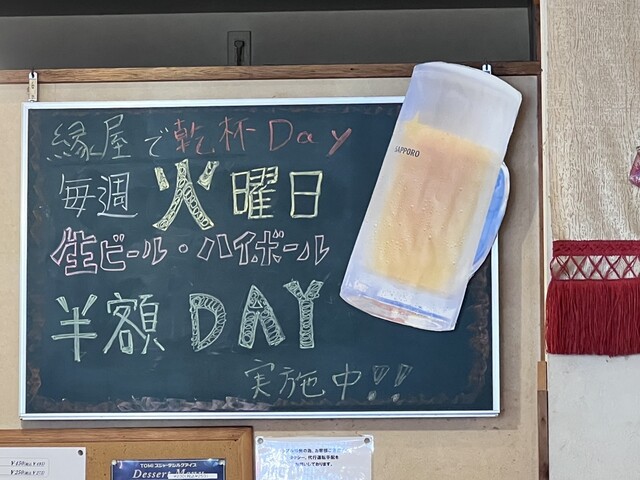 縁屋で乾杯Day
毎週火曜日
生ビール・ハイボール
半額DAY
実施中!!
SAPPORO
TOMIZ
Dessert Menu